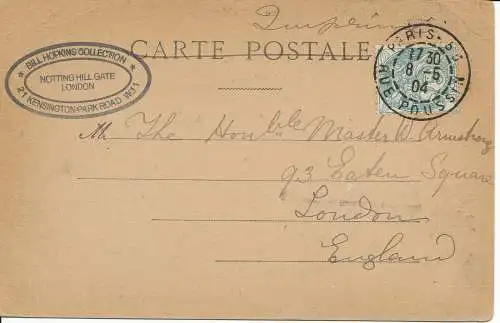 Imprimé
CARTE POSTALE
* BILL HOPKINS COLLECTION *
NOTTING HILL GATE
LONDON
21 KENSINGTON PARK ROAD W11
PARIS
17 30
8 - 5
04
RUE POUSSIN
M The Honble Master W Armstrong
93 Eaton Square
London
England